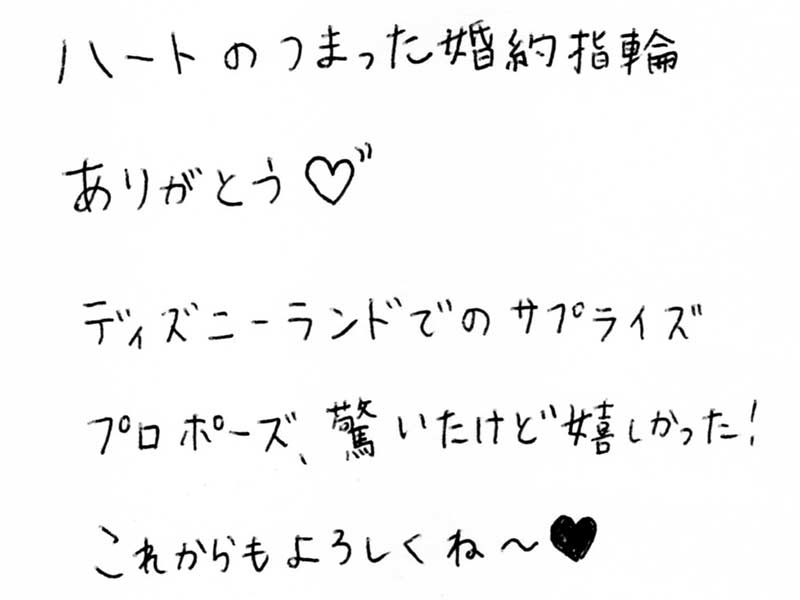 ハートのつまった婚約指輪
ありがとう♡"
ディズニーランドでのサプライズ
プロポーズ、驚いたけど嬉しかった!
これからもよろしくね〜♥